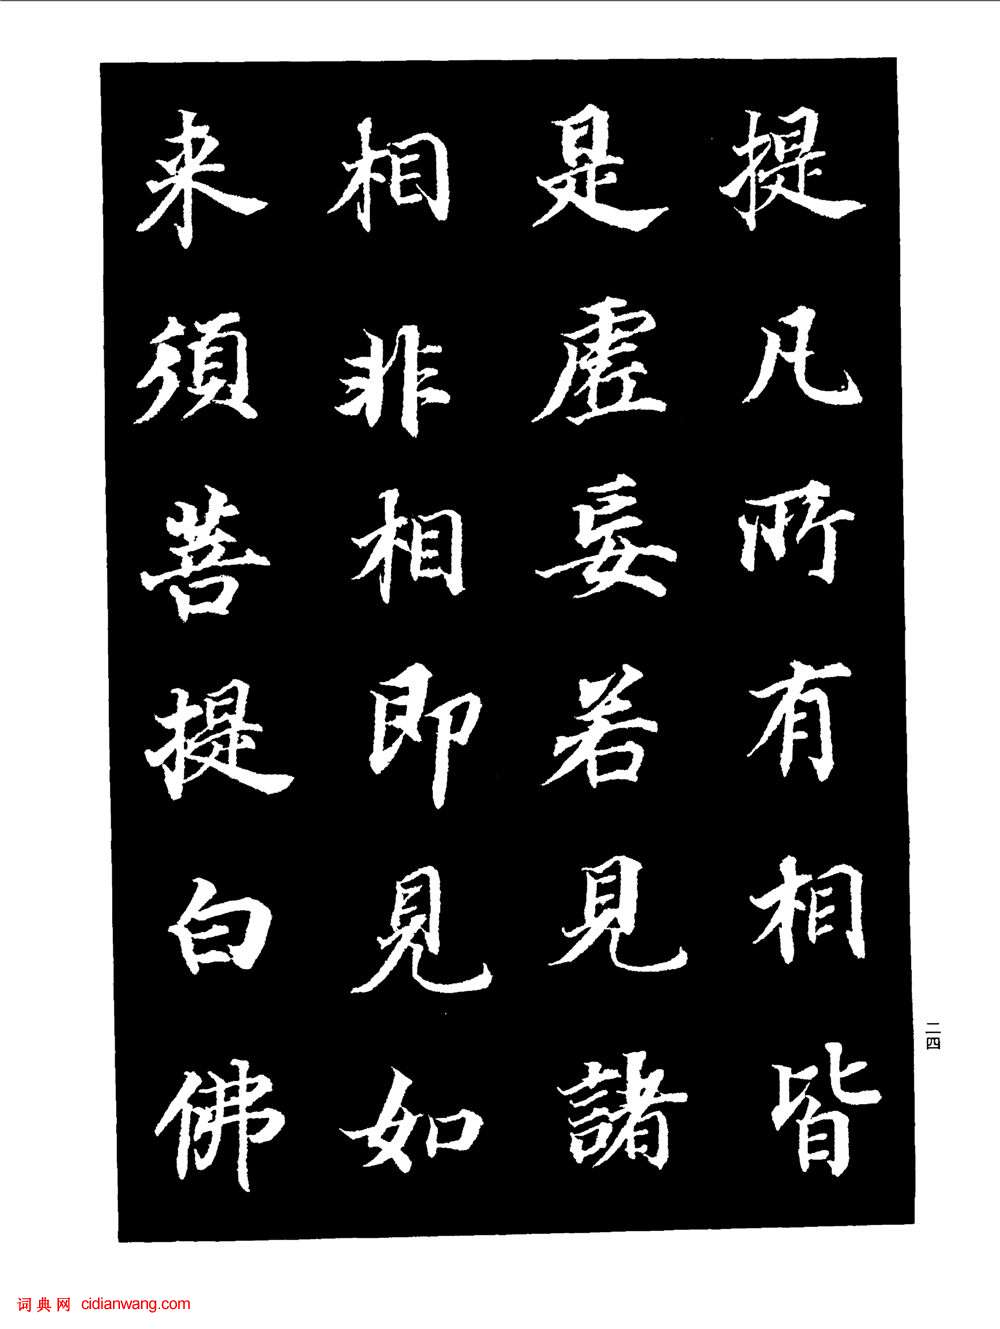 提凡所有相皆
是虛妄若見諸
相非相即見如
来須菩提白佛
二四
词典网 cidianwang.com